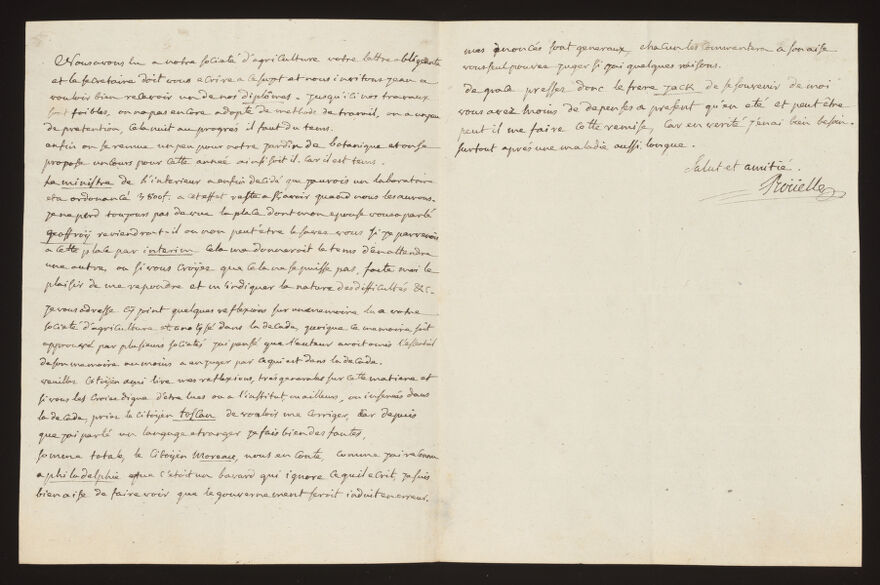 Nous avons lu a notre sociaté d'agriculture votre lettre obligeante
et le secretaire doit vous ecrire a ce sujet et nous invitons Jean a
vouloir bien relavoir un de nos diplômes. Jusqu'ici nos travaux
sont foibles, on na pas encore adopté de methode de travail, on a un peu
de pretention, cela nuit au progres il faut du tems.
enfin on se remue un peu pour notre jardin de botanique et on se
propose un cours pour cette année ainsi soit il. Car il est tems.
Le ministre de l'interieur a enfin decidé que j'aurois un laboratoire
et a ordonancé 3800f. a cet effet reste a sçavoir quand nous les aurons.
Je ne perd toujours pas de vue la place dont mon epouse vous a parlé
geoffroy reviendra-t-il ou non peut être le savez vous si je parvenois
a cette place par interim cela me donneroit le tems d'en attendre
une autre, ou si vous croyez que cela ne se puisse pas, faite moi le
plaisir de me repondre et m'indiquer la nature des difficultés &c-
Je vous adresse cy joint quelques reflexions sur un memoire lu a votre
sociaté d'agriculture et analysé dans la decade, quoique ce memoire soit
approuvé par plusieurs societés j'ai pensé que l'auteur avoit omis l'essentiel
de son memoire au moins a en juger par ce qui est dans la decade.
veuillez citoyen ami lire mes reflexions, tres generales sur cette matiere et
si vous les croiez digne d'être lues ou a l'institut, ou ailleurs, ou inserées dans
la decade, priez le citoyen toscan de vouloir me corriger, Car depuis
que j'ai parlé un langage etranger je fais bien des fautes,
somme totale, le citoyen Moreau, nous en conte, comme j'ai reconnu
a philadelphie que c'étoit un bavard qui ignore ce qu'il ecrit, je suis
bien aise de faire voir que le gouvernement seroit induit en erreur.
mes enoncés sont generaux, chacun les commentera a son aise
vous seul pouvez juger si j'ai quelques raisons.
De grace presses donc le frere JACK de se souvenir de moi
vous avez moins de depenses a present qu'en eté et peut être
peut il me faire cette remise, Car en verité j'en ai bien besoin.
surtout après une maladie aussi longue.
Salut et amitié.
Roüelle